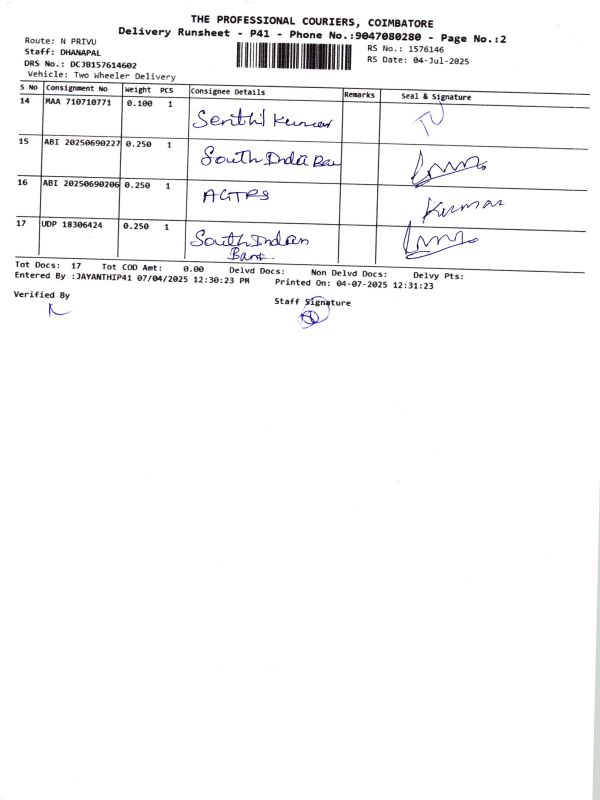 THE PROFESSIONAL COURIERS, COIMBATORE
Delivery Runsheet - P41 - Phone No.:9047080280 - Page No.:2
Route: N PRIVU
RS No.: 1576146
Staff: DHANAPAL
RS Date: 04-Jul-2025
DRS No.: DCJB157614602
Vehicle: Two Wheeler Delivery
S No Consignment No Weight PCS Consignee Details Remarks Seal & Signature
14 MAA 710710771 0.100 1 Senthil Kumar
15 ABI 20250690227 0.250 1 South India Ban
16 ABI 20250690206 0.250 1 AGTPS Kumar
17 UDP 18306424 0.250 1 South Indian
Bank
Tot Docs: 17 Tot COD Amt: 0.00 Delvd Docs: Non Delvd Docs: Delvy Pts:
Entered By :JAYANTHIP41 07/04/2025 12:30:23 PM Printed On: 04-07-2025 12:31:23
Verified By
Staff Signature